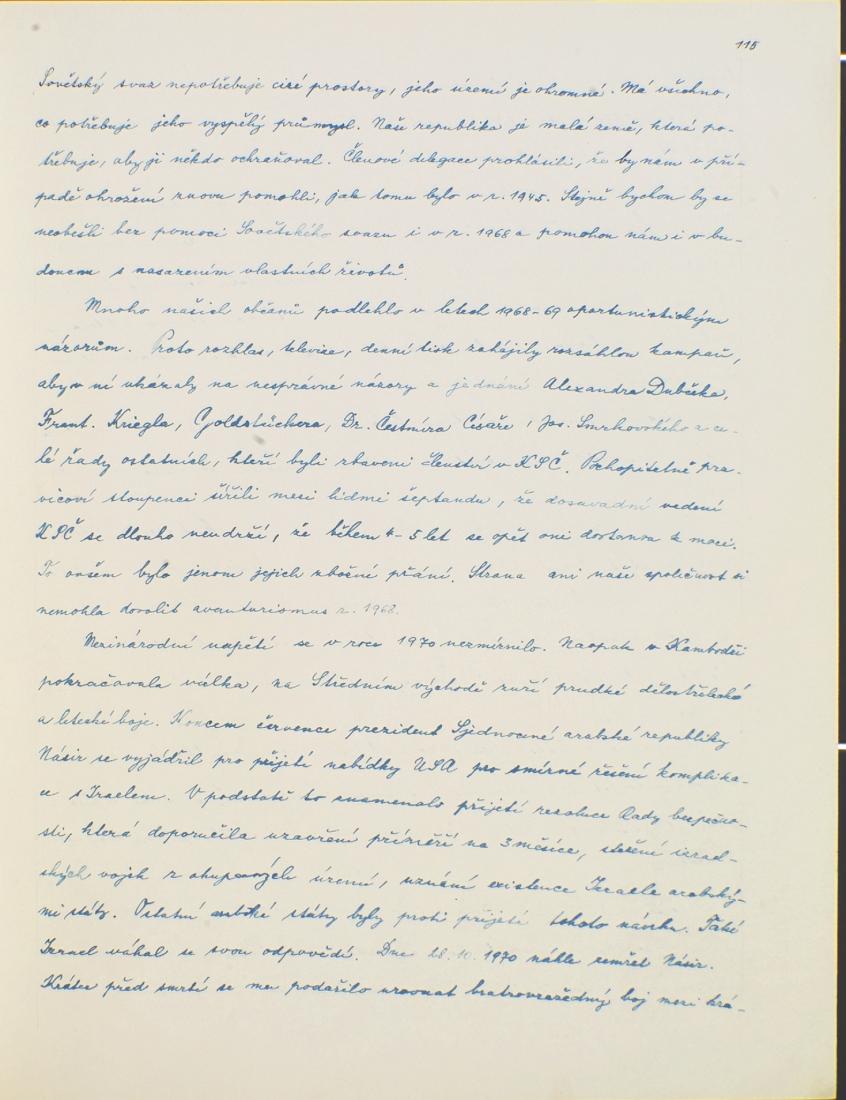 115
Sovětský svaz nepotřebuje cizí prostory, jeho území je ohromné. Má všechno,
co potřebuje jeho vyspělý průmysl. Naše republika je malá země, která po-
třebuje, aby ji někdo ochraňoval. Členové delegace prohlásili, že by nám v pří-
padě ohrožení znovu pomohli, jak tomu bylo v r. 1945. Stejně bychom by se
neobešli bez pomoci Sovětského svazu i v r. 1968 a pomohou nám i v bu-
doucnu s nasazením vlastních životů.
Mnoho našich občanů podlehlo v letech 1968-69 oportunistickým
názorům. Proto rozhlas, televise, denní tisk zahájily rozsáhlou kampaň,
aby v ní ukázaly na nesprávné názory a jednání Alexandra Dubčeka,
Frant. Kriegla, Goldstückera, Dr. Čestmíra Císaře, Jos. Smrkovského a ce-
lé řady ostatních, kteří byli zbaveni členství v KSČ. Pochopitelně pra-
vicoví stoupenci šířili mezi lidmi šeptandu, že dosavadní vedení
KSČ se dlouho neudrží, že během 4-5 let se opět oni dostanou k moci.
To ovšem bylo jenom jejich zbožné přání. Strana ani naše společnost si
nemohla dovolit avanturismus r. 1968.
Mezinárodní napětí se v roce 1970 nezmírnilo. Naopak v Kambodži
pokračovala válka, na Středním východě zuří prudké dělostřelecké
a letecké boje. Koncem července prezident Sjednocené arabské republiky
Násir se vyjádřil pro přijetí nabídky USA pro smírné řešení komplika-
ce s Izraelem. V podstatě to znamenalo přijetí rezoluce Rady bezpečno-
sti, která doporučila uzavření příměří na 3 měsíce, stažení izrael-
ských vojsk z okupovaných území, uznání existence Izraele arabský-
mi státy. Ostatní arabské státy byly proti přijetí tohoto návrhu. Také
Izrael váhal se svou odpovědí. Dne 28. 10. 1970 náhle zemřel Násir.
Krátce před smrtí se mu podařilo urovnat bratrovražedný boj mezi krá-